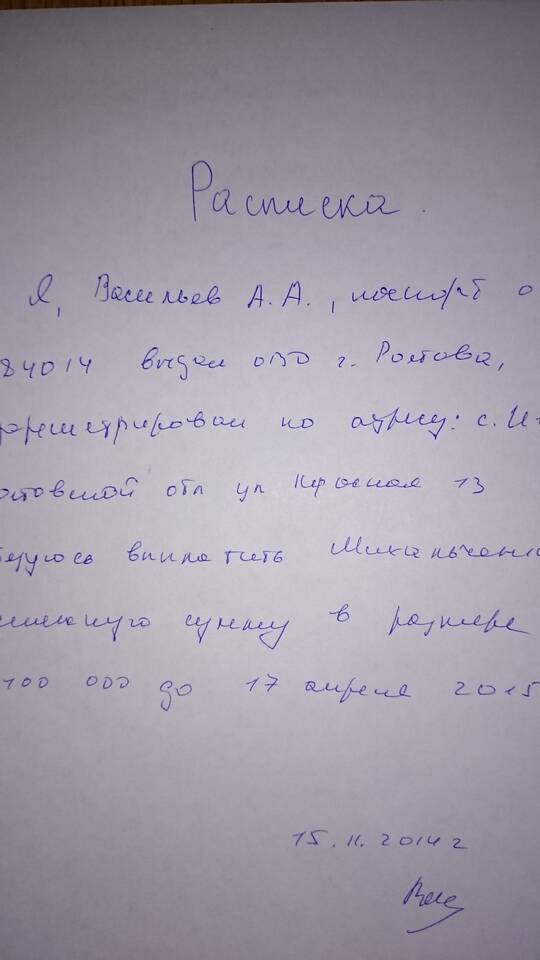 Расписка.
Я, Васильев А. А., паспорт о
84014 выдан ОВО г. Ростова,
регистрирован по адресу: с. И
остовской обл ул Красная 13
бязуюсь выплатить Михальченко
сумму в размере
100 000 до 17 апреля 2015
15. 11. 2014 г